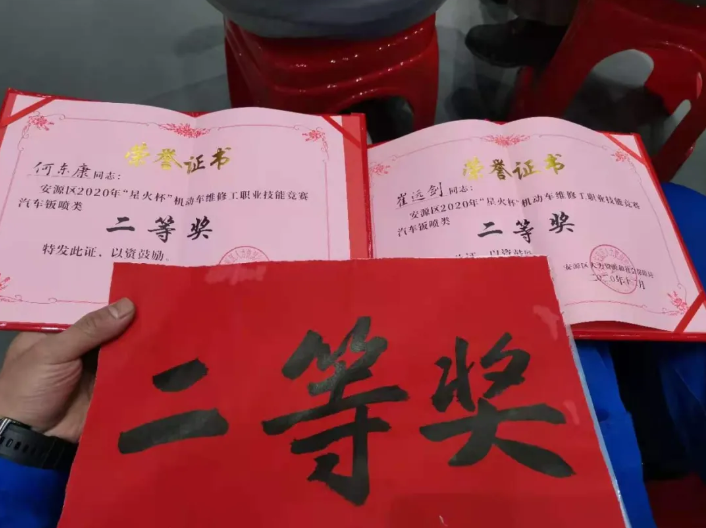 荣誉证书
何东康同志：
安源区2020年“星火杯”机动车维修工职业技能竞赛
汽车钣喷类
二等奖
特发此证，以资鼓励。
荣誉证书
崔远剑同志：
安源区2020年“星火杯”机动车维修工职业技能竞赛
汽车钣喷类
二等奖
此证，以资鼓励。
安源区人力资源和社会保障局
二等奖